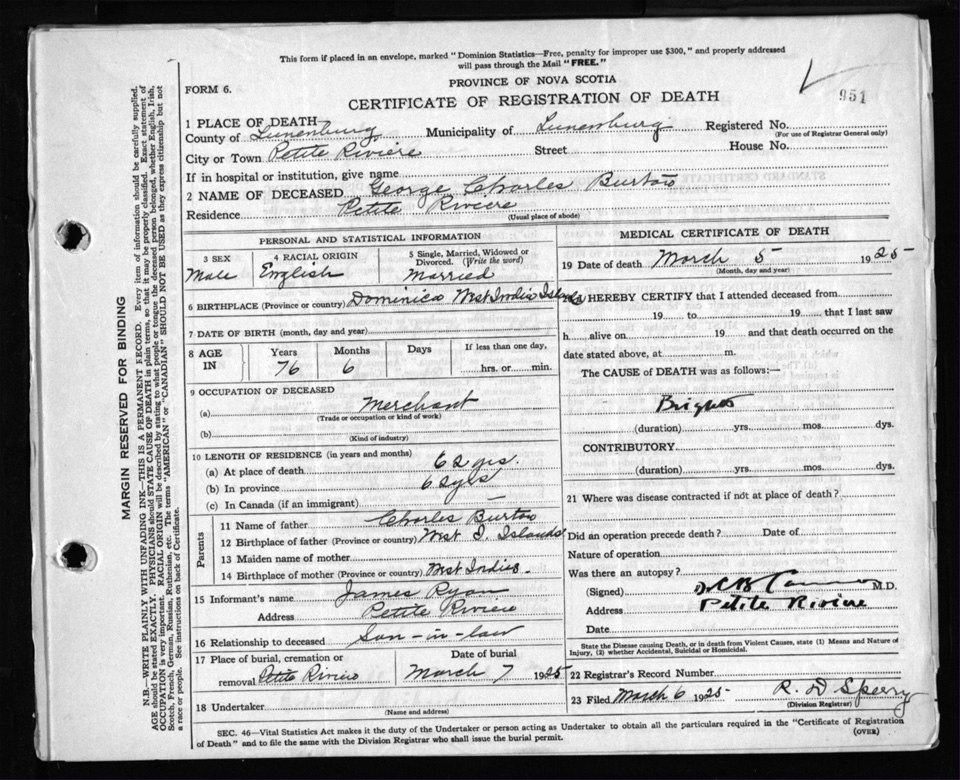 This form if placed in an envelope, marked "Dominion Statistics—Free, penalty for improper use $300," and properly addressed
will pass through the Mail "FREE."
PROVINCE OF NOVA SCOTIA
FORM 6.
CERTIFICATE OF REGISTRATION OF DEATH
951
1 PLACE OF DEATH
County of Lunenburg Municipality of Lunenburg Registered No.
(For use of Registrar General only)
City or Town Petite Riviere Street House No.
If in hospital or institution, give name
2 NAME OF DECEASED George Charles Burton
Residence Petite Riviere
(Usual place of abode)
PERSONAL AND STATISTICAL INFORMATION
3 SEX 4 RACIAL ORIGIN 5 Single, Married, Widowed or
Divorced. (Write the word)
Male English Married
6 BIRTHPLACE (Province or country) Dominica West India Islands
7 DATE OF BIRTH (month, day and year)
8 AGE IN Years Months Days If less than one day,
76 6 hrs. or min.
9 OCCUPATION OF DECEASED
(a) Merchant
(Trade or occupation or kind of work)
(b)
(Kind of industry)
10 LENGTH OF RESIDENCE (in years and months)
(a) At place of death 62 yrs.
(b) In province 62 yrs
(c) In Canada (if an immigrant) —
Parents
11 Name of father Charles Burton
12 Birthplace of father (Province or country) West I. Islands
13 Maiden name of mother
14 Birthplace of mother (Province or country) West Indies.
15 Informant's name James Ryan
Address Petite Riviere
16 Relationship to deceased Son-in-law
17 Place of burial, cremation or Date of burial
removal Petite Riviere March 7 1925
18 Undertaker
(Name and address)
MEDICAL CERTIFICATE OF DEATH
19 Date of death March 5 1925
(Month, day and year)
I HEREBY CERTIFY that I attended deceased from
19 to 19 that I last saw
h alive on 19 and that death occurred on the
date stated above, at m.
The CAUSE of DEATH was as follows:—
Brights
(duration) yrs. mos. dys.
CONTRIBUTORY
(duration) yrs. mos. dys.
21 Where was disease contracted if not at place of death?
Did an operation precede death? Date of
Nature of operation
Was there an autopsy?
(Signed) M.D.
Address Petite Riviere
Date
State the Disease causing Death, or in death from Violent Causes, state (1) Means and Nature of
Injury, (2) whether Accidental, Suicidal or Homicidal.
22 Registrar's Record Number
23 Filed March 6 1925 R. D Sperry
(Division Registrar)
SEC. 46—Vital Statistics Act makes it the duty of the Undertaker or person acting as Undertaker to obtain all the particulars required in the "Certificate of Registration
of Death" and to file the same with the Division Registrar who shall issue the burial permit. (OVER)
MARGIN RESERVED FOR BINDING
N.B.—WRITE PLAINLY WITH UNFADING INK—THIS IS A PERMANENT RECORD. Every item of information should be carefully supplied.
AGE should be stated EXACTLY. PHYSICIANS should STATE CAUSE OF DEATH in plain terms, so that it may be properly classified. Exact statement of
OCCUPATION is very important. RACIAL ORIGIN will be described by stating to what people or tongue the deceased person belonged, whether English, Irish,
Scotch, French, German, Russian, Ruthenian, etc. The terms "AMERICAN" or "CANADIAN" SHOULD NOT BE USED as they express citizenship but not
a race or people. See instructions on back of Certificate.